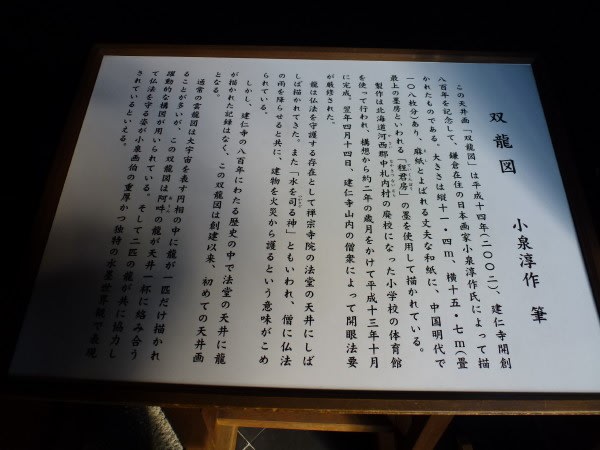 双龍図
小泉淳作 筆
この天井画「双龍図」は平成十四年(二〇〇二)、建仁寺開創
八百年を記念して、鎌倉在住の日本画家小泉淳作氏によって描
かれたものである。大きさは縦十一・四m、横十五・七m(畳
一〇八枚分)あり、麻紙とよばれる丈夫な和紙に、中国明代で
最上の墨房といわれる「程君房」の墨を使用して描かれている。
製作は北海道河西郡中札内村の廃校になった小学校の体育館
を使って行われ、構想から約二年の歳月をかけて平成十三年十月
に完成、翌年四月十四日、建仁寺山内の僧衆によって開眼法要
が厳修された。
龍は仏法を守護する存在として禅宗寺院の法堂の天井にしば
しば描かれてきた。また「水を司る神」ともいわれ、僧に仏法
の雨を降らせると共に、建物を火災から護るという意味がこめ
られている。
しかし、建仁寺の八百年にわたる歴史の中で法堂の天井に龍
が描かれた記録はなく、この双龍図は創建以来、初めての天井画
となる。
通常の雲龍図は大宇宙を表す円相の中に龍が一匹だけ描かれ
ることが多いが、この双龍図は阿吽の龍が天井一杯に絡み合う
躍動的な構図が用いられている。そして二匹の龍が共に協力し
て仏法を守る姿が小泉画伯の重厚かつ独特の水墨世界観で表現
されているといえる。